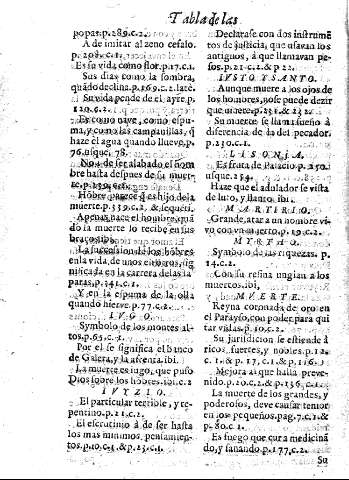 Tabla de las
popas.p.289.c.2.
A de imitar al zeno cefalo.
p. 208. c.1.
Es su vida como flor.p.17.c.1.
Sus dias como la sombra,
quãdo declina.p.169.c.2.late.
Su vida pende del ayre.p.
Es como nave, como espu-
ma, y como las campanillas, q̃
haze el agua quando llueve.p.
76.usque. 78.
No a de ser alabado el hom
bre hasta despues de su muer-
te.
Hõbre parece q̃ es hijo de la
muerte.p.339.c.2. & sequēti.
Apenas nace el hombre, quã
do la muerte lo recibe en sus
braços.
La sucession de los hõbres
en la vida, de unos en otros, sig
nificada en la carrera de las la
paras.p.341.c.1.
Y en la espuma de la olla
quando hierve.p.77.c.2.
IVGO.
Symbolo de los montes al-
tos.p.65.c.1.
Por el se significa el banco
de Galera, y la afrenta.ibi.
La muerte es iugo, que puso
Dios sobre los hõbres.ibi.c.2
IVYZIO.
El particular terrible, y re-
pentino.p.21.c.2.
El escrutinio à de ser hasta
los mas minimos pensamien-
tos.p.10.c.1.& p.23.c.1.
Declarase con dos instrumẽ
tos de justicia, que usavan los
antiguos, â que llamavan pe-
sos.p.21.c.2.& p.22.
IVSTO Y SANTO.
Aunque muere a los ojos de
los hombres, no se puede dezir
que muere.p.231.& 232.
Su muerte se llama sueño à
diferencia de la del pecador.
p.230.c.1.
LISONIA.
Es fruta de Palacio.p.250.
usque.254.
Haze que el adulador se vista
de luto, y llanto.ibi.
MARTIRIO.
Grande, atar a un hombre vi
vo con un muerto.p.19.c.2.
MYRTHO.
Symbolo de las riquezas. p.
14.c.2.
Con su resina ungian a los
muertos.ibi,
MVERTE.
Reyna coronada de oro en
el Parayso, con poder para qui
tar vidas.p.10.c.2.
Su jurisdicion se estiende â
ricos, fuertes, y nobles.p.12.
c.1. & p.17. c.1, & p.116.c.1.
Mejora al que halla preve-
nido.p.20.c.2.& p.136.c.1.
La muerte de los grandes, y
poderosos, deve causar temor
en los pequeños.pag.7.c.1.&
p.80.c.1.
Es fuego que cura medicinã
do, y sanando.p.177.c.2.
Su